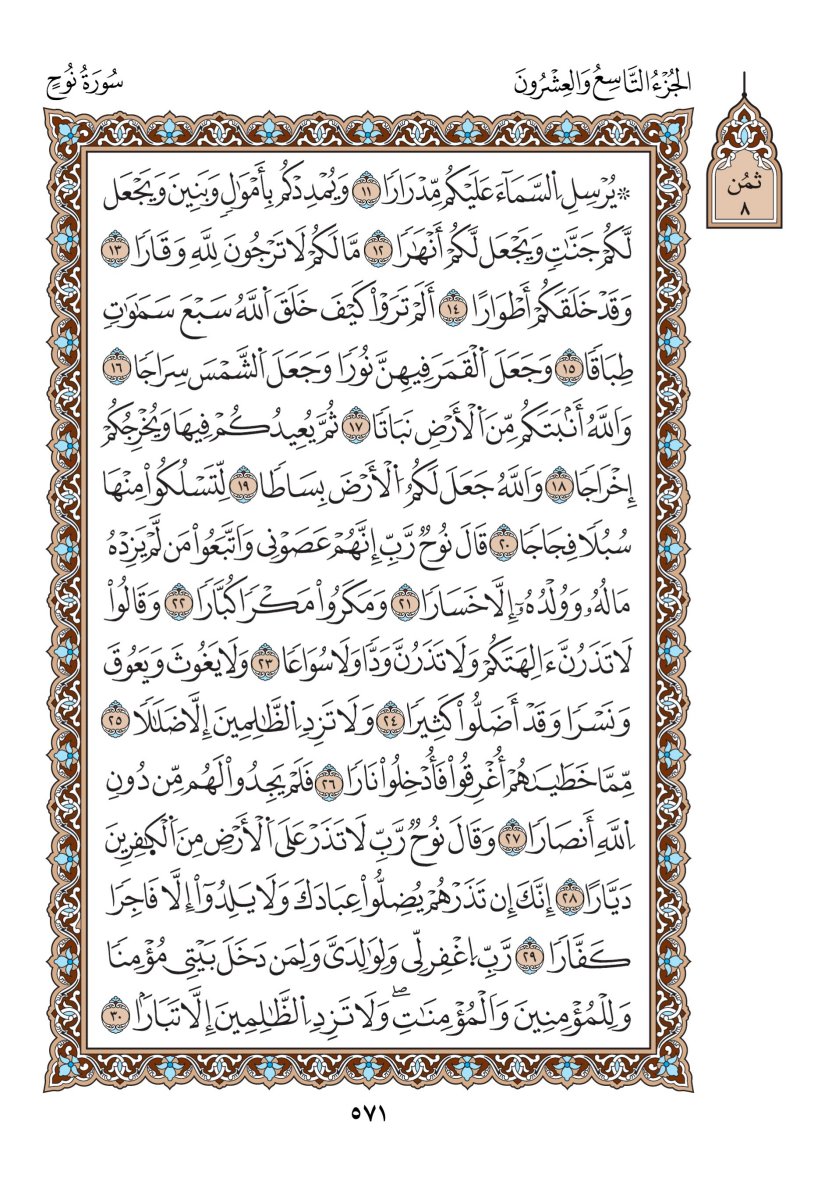 الجُزْءُ التَّاسِعُ وَالعِشْرُونَ
سُورَةُ نُوحٍ
ثُمُن
٨
۞ يُرْسِلِ اِ۬لسَّمَآءَ عَلَيْكُم مِّدْرَارٗا ١١ وَيُمْدِدْكُم بِأَمْوَٰلٖ وَبَنِينَ وَيَجْعَل
لَّكُمْ جَنَّٰتٖ وَيَجْعَل لَّكُمْ أَنْهَٰرٗا ١٢ مَّا لَكُمْ لَا تَرْجُونَ لِلَّهِ وَقَارٗا ١٣
وَقَدْ خَلَقَكُمْ أَطْوَارًا ١٤ أَلَمْ تَرَوْاْ كَيْفَ خَلَقَ اَ۬للَّهُ سَبْعَ سَمَٰوَٰتٖ
طِبَاقٗا ١٥ وَجَعَلَ اَ۬لْقَمَرَ فِيهِنَّ نُورٗا وَجَعَلَ اَ۬لشَّمْسَ سِرَاجٗا ١٦
وَاَللَّهُ أَنۢبَتَكُم مِّنَ اَ۬لْأَرْضِ نَبَاتٗا ١٧ ثُمَّ يُعِيدُكُمْ فِيهَا وَيُخْرِجُكُمْ
إِخْرَاجٗا ١٨ وَاَللَّهُ جَعَلَ لَكُمُ اُ۬لْأَرْضَ بِسَاطٗا ١٩ لِّتَسْلُكُواْ مِنْهَا
سُبُلٗا فِجَاجٗا ٢٠ قَالَ نُوحٞ رَّبِّ إِنَّهُمْ عَصَوْنِي وَاَتَّبَعُواْ مَن لَّمْ يَزِدْهُ
مَالُهُۥ وَوُلْدُهُۥٓ إِلَّا خَسَارٗا ٢١ وَمَكَرُواْ مَكْرٗا كُبَّارٗا ٢٢ وَقَالُواْ
لَا تَذَرُنَّ ءَالِهَتَكُمْ وَلَا تَذَرُنَّ وَدّٗا وَلَا سُوَاعٗا ٢٣ وَلَا يَغُوثَ وَيَعُوقَ
وَنَسْرٗا وَقَدْ أَضَلُّواْ كَثِيرٗا ٢٤ وَلَا تَزِدِ اِ۬لظَّٰلِمِينَ إِلَّا ضَلَٰلٗا ٢٥
مِّمَّا خَطَٰيَٰهُمْ أُغْرِقُواْ فَأُدْخِلُواْ نَارٗا ٢٦ فَلَمْ يَجِدُواْ لَهُم مِّن دُونِ
اِ۬للَّهِ أَنصَارٗا ٢٧ وَقَالَ نُوحٞ رَّبِّ لَا تَذَرْ عَلَى اَ۬لْأَرْضِ مِنَ اَ۬لْكٰ۪فِرِينَ
دَيَّارًا ٢٨ إِنَّكَ إِن تَذَرْهُمْ يُضِلُّواْ عِبَادَكَ وَلَا يَلِدُوٓاْ إِلَّا فَاجِرٗا
كَفَّارٗا ٢٩ رَّبِّ اِ۪غْفِر لِّي وَلِوَٰلِدَيَّ وَلِمَن دَخَلَ بَيْتِي مُؤْمِنٗا
وَلِلْمُؤْمِنِينَ وَاَلْمُؤْمِنَٰتِۖ وَلَا تَزِدِ اِ۬لظَّٰلِمِينَ إِلَّا تَبَارَۢا ٣٠
٥٧١